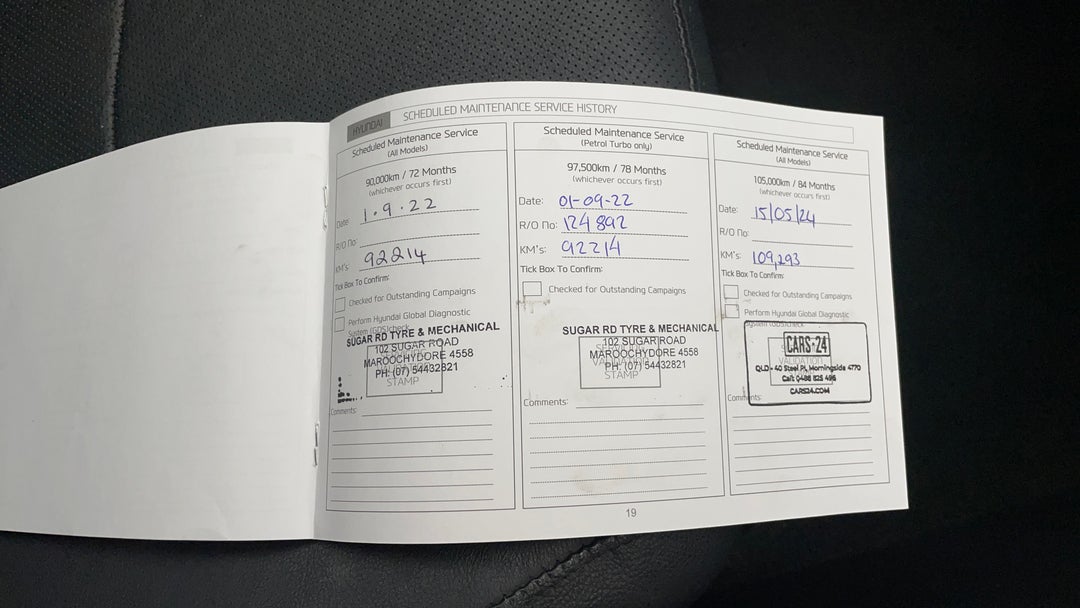 HYUNDAI SCHEDULED MAINTENANCE SERVICE HISTORY
Scheduled Maintenance Service
(All Models)
90,000km / 72 Months
(whichever occurs first)
Date: 1.9.22
R/O No:
KM's: 92214
Tick Box To Confirm:
Checked for Outstanding Campaigns
Perform Hyundai Global Diagnostic
System (GDS) check
SUGAR RD TYRE & MECHANICAL
102 SUGAR ROAD
MAROOCHYDORE 4558
PH: (07) 54432821
STAMP
Comments:
Scheduled Maintenance Service
(Petrol Turbo only)
97,500km / 78 Months
(whichever occurs first)
Date: 01-09-22
R/O No: 124892
KM's: 92214
Tick Box To Confirm:
Checked for Outstanding Campaigns
SUGAR RD TYRE & MECHANICAL
102 SUGAR ROAD
MAROOCHYDORE 4558
PH: (07) 54432821
STAMP
Comments:
Scheduled Maintenance Service
(All Models)
105,000km / 84 Months
(whichever occurs first)
Date: 15/05/24
R/O No:
KM's: 109,293
Tick Box To Confirm:
Checked for Outstanding Campaigns
Perform Hyundai Global Diagnostic
System (GDS) check
CARS24
VALIDATION
QLD - 40 Steel Pl, Morningside 4770
Call: 0488 825 496
CARS24.COM
Comments:
19